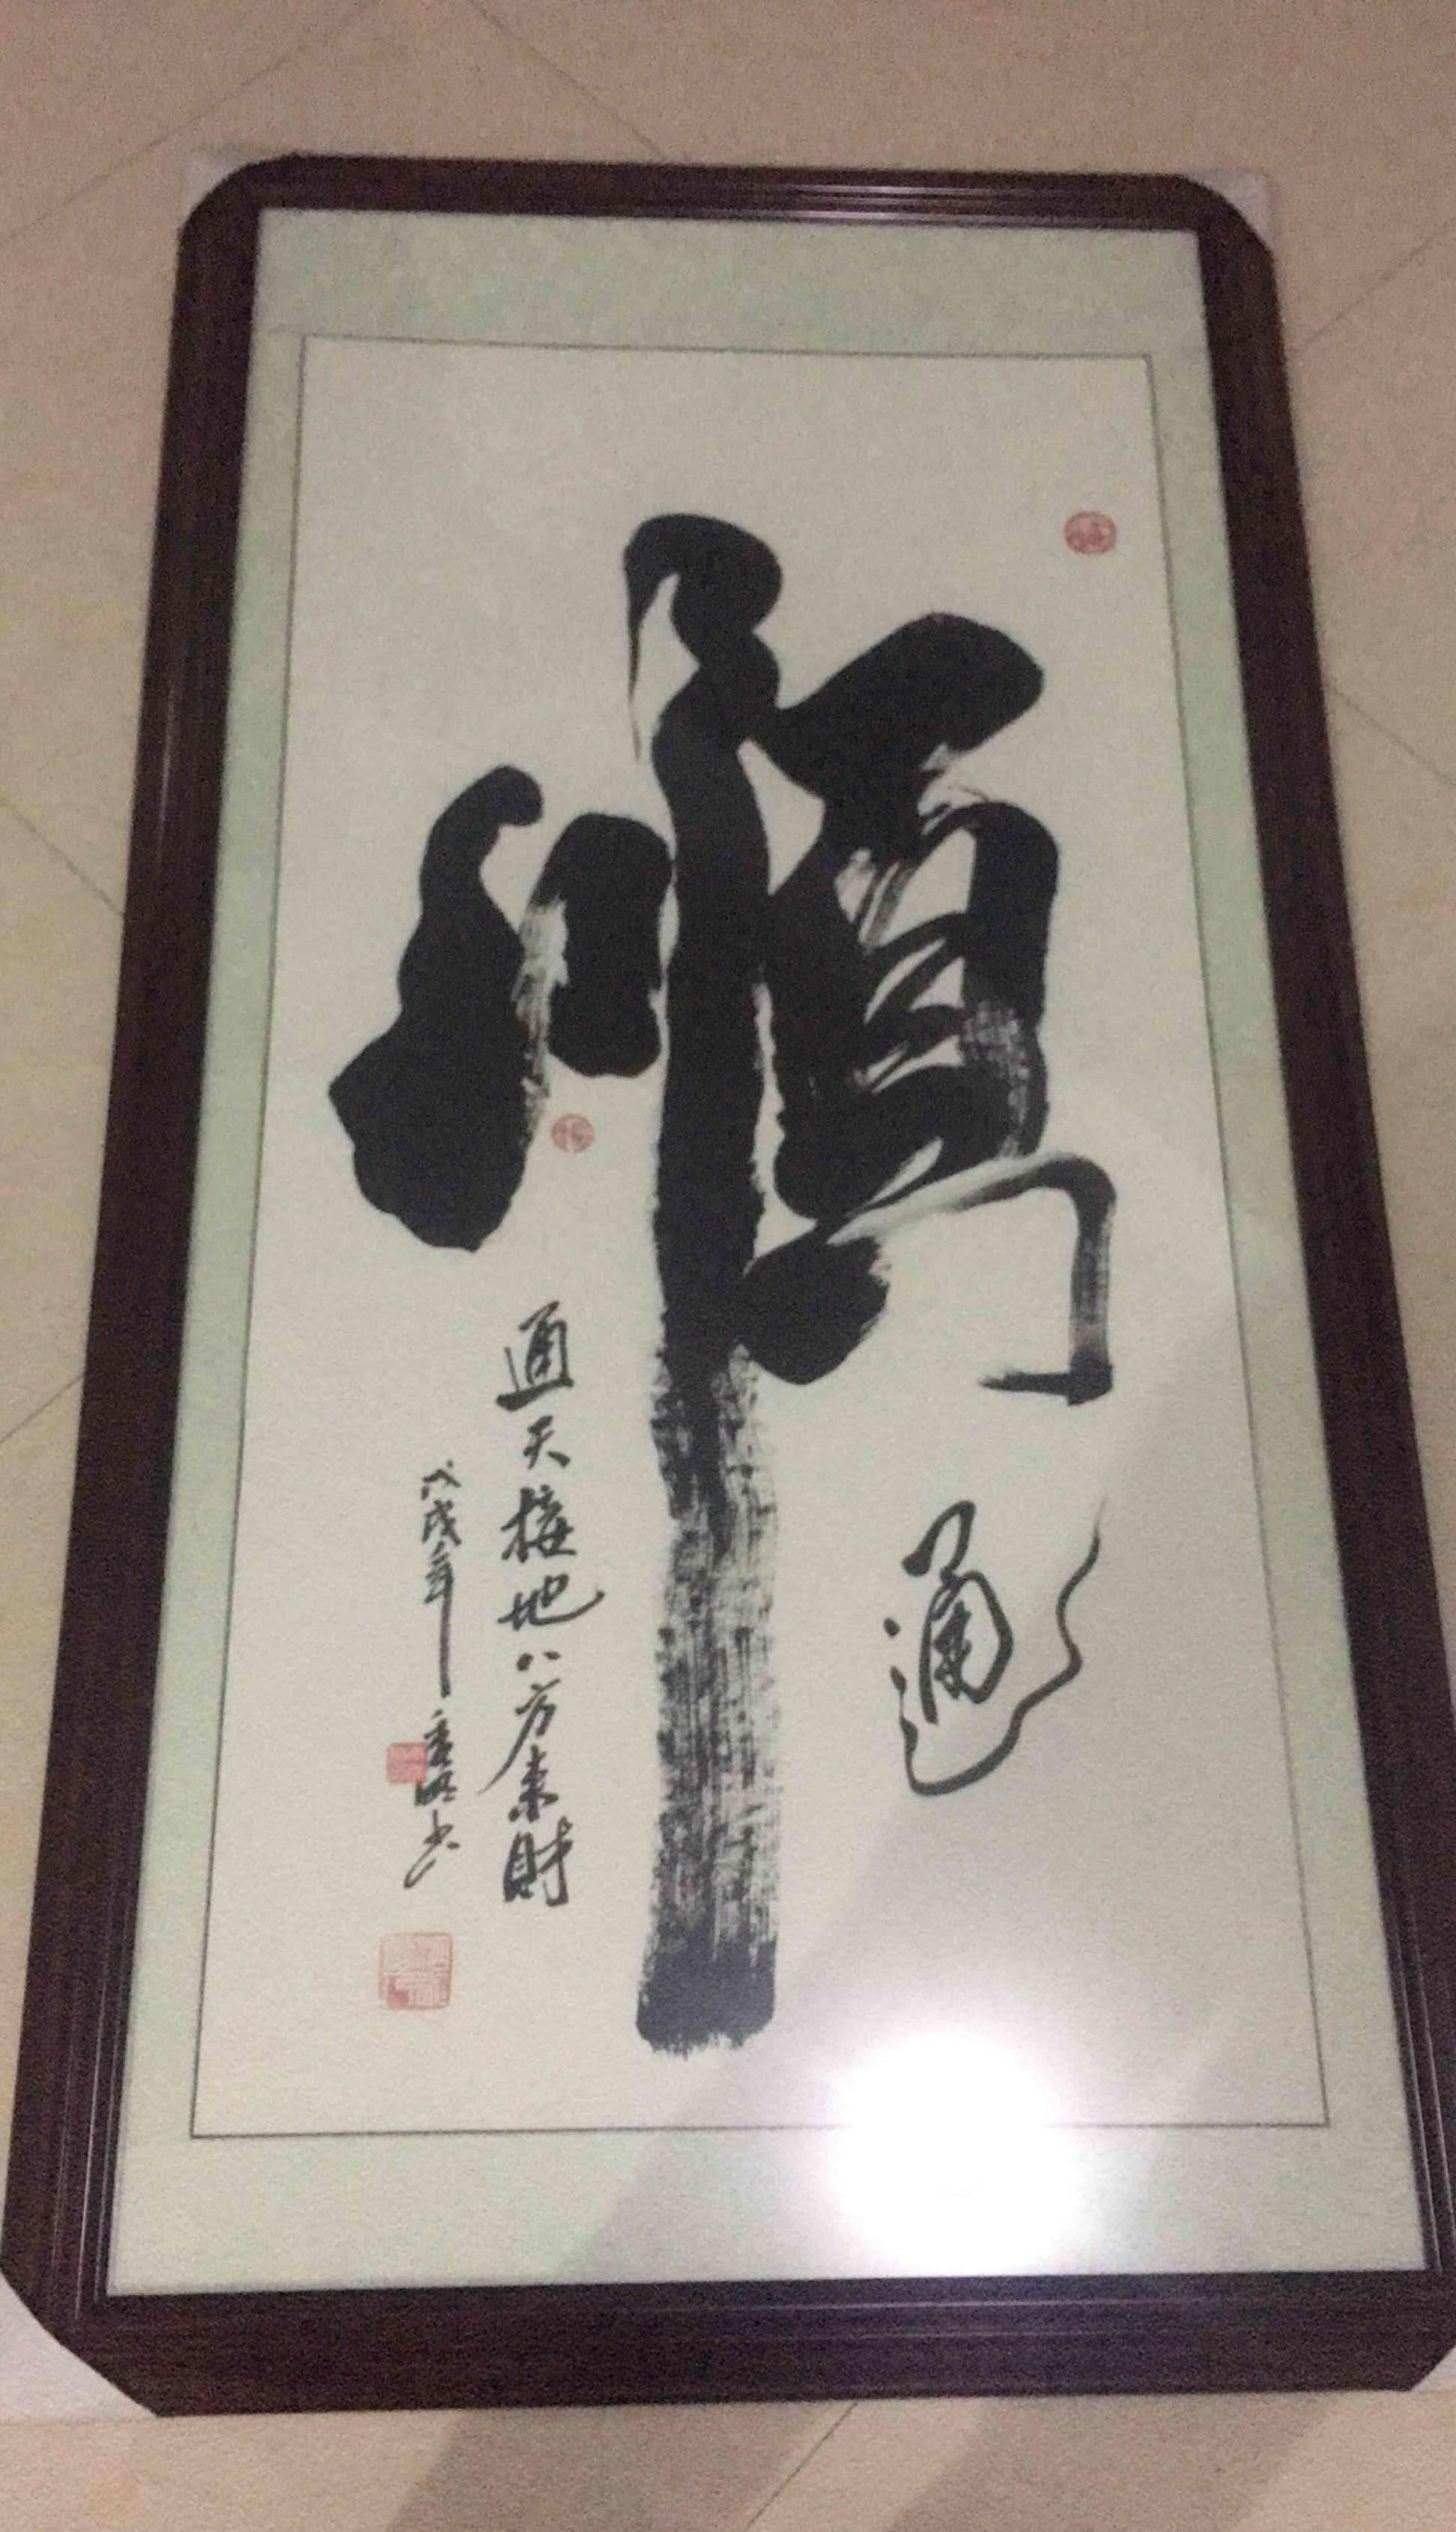 順
通
通天接地八方来財
戊戌年